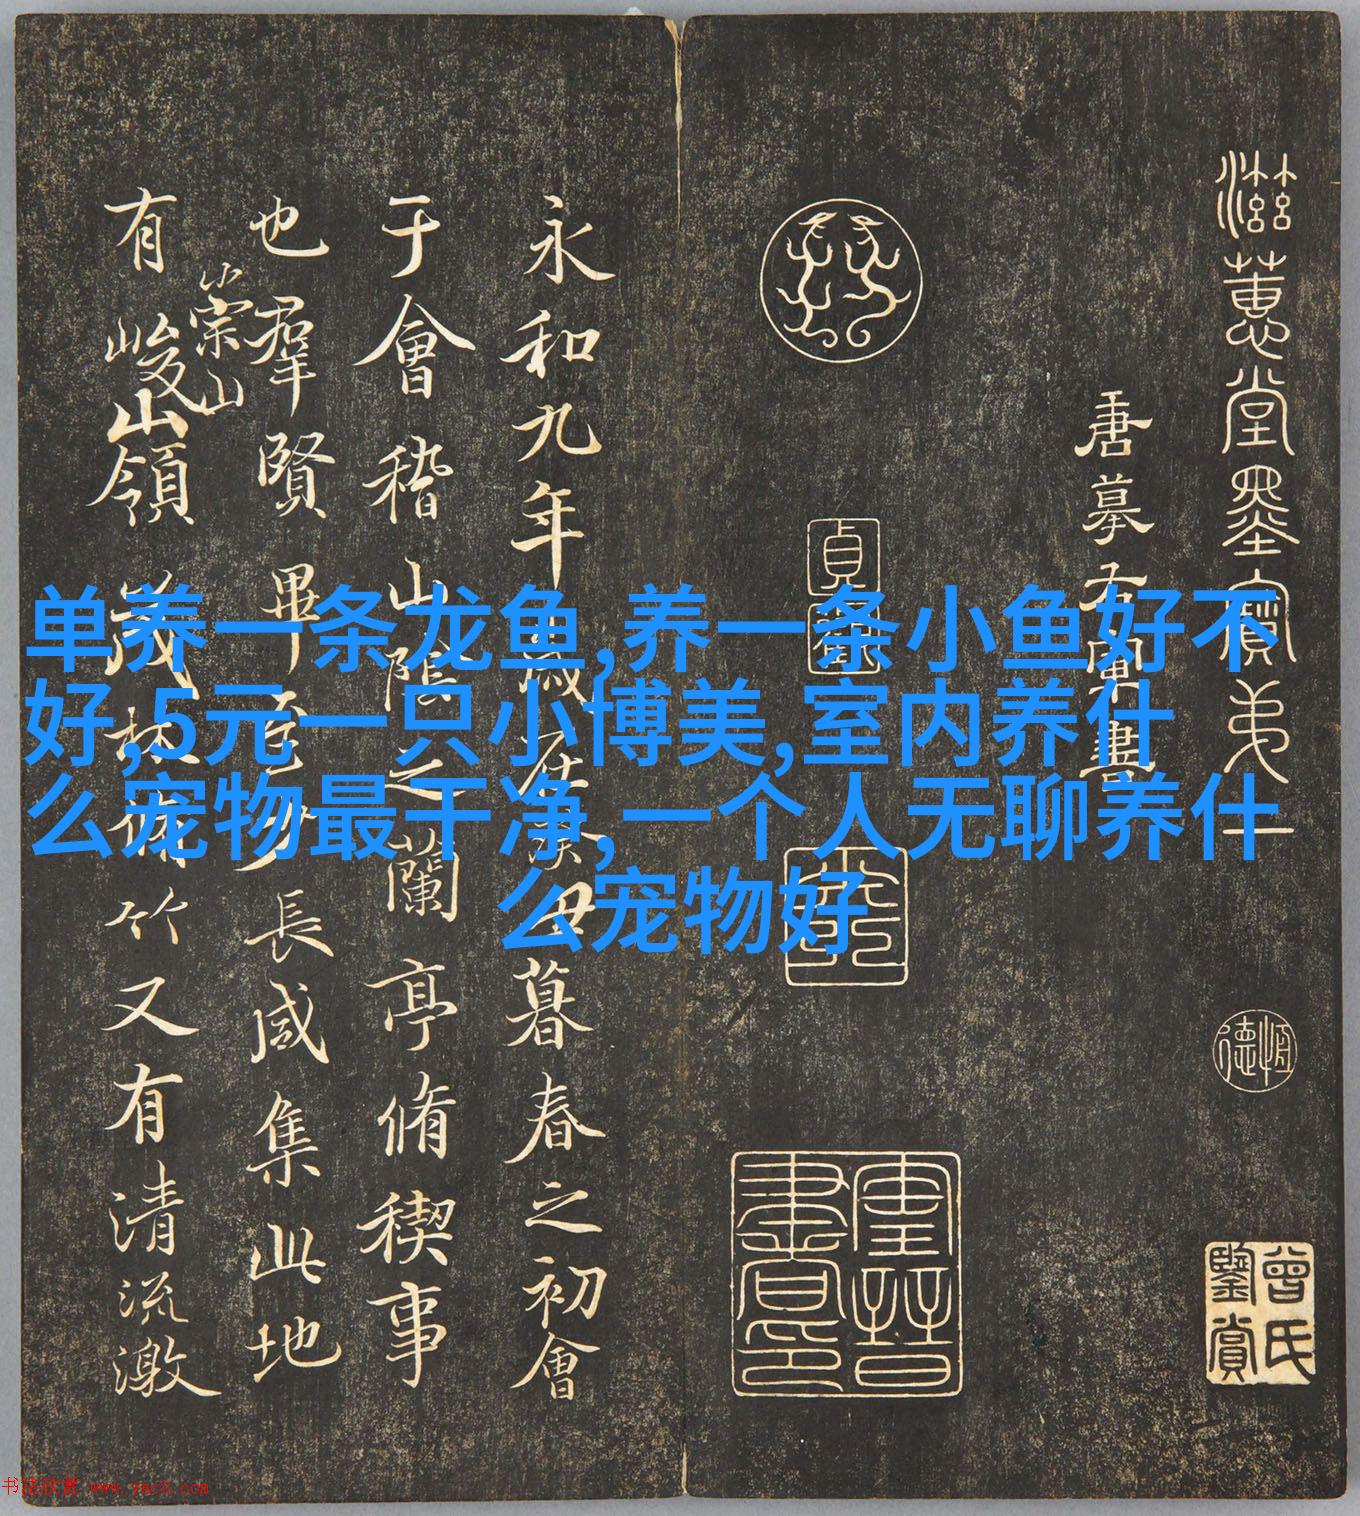 滋蕙堂墨寶弟一
唐摹右軍書
恒德
曾氏鑒賞
永和九年歲在癸丑暮春之初會
于會稽山陰之蘭亭脩稧事
也羣賢畢至少長咸集此地
崇山
有峻領茂林脩竹又有清流激
单养一条龙鱼,养一条小鱼好不
好,5元一只小博美,室内养什
么宠物最干净,一个人无聊养什
么宠物好
书法欣赏 www.yac8.com